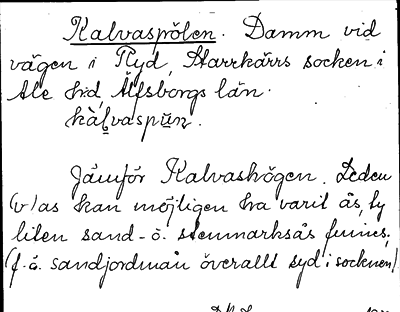 Kalvaspölen. Damm vid
vägen i Ryd, Starrkärrs socken i
Ale hrd, Älfsborgs län.
kàlvaspun.
Jämför Kalvashögen. Leden
(v)as kan möjligen ha varit ås, ty
liten sand- o. stenmarksås finnes,
(f. ö. sandjordmån överallt syd i socknen)